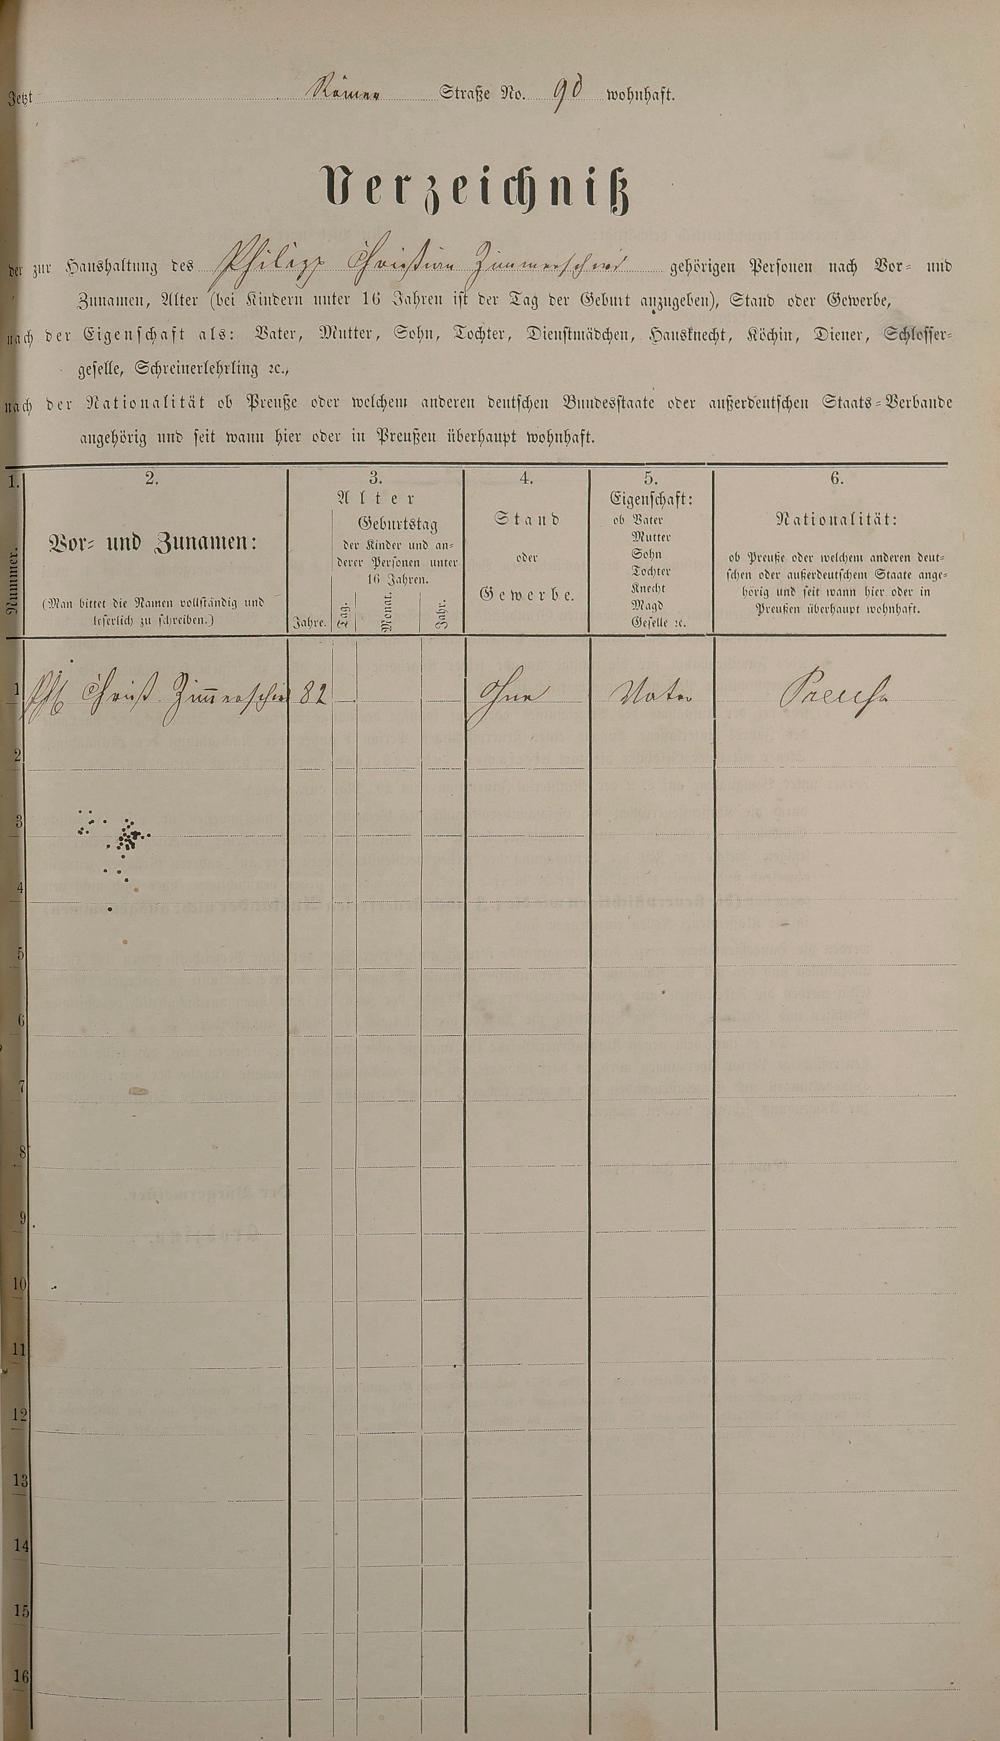 Jetzt Römer Straße No. 90 wohnhaft.
Verzeichniß
der zur Haushaltung des Philipp Christian Zimmerschied gehörigen Personen nach Vor- und
Zunamen, Alter (bei Kindern unter 16 Jahren ist der Tag der Geburt anzugeben), Stand oder Gewerbe,
nach der Eigenschaft als: Vater, Mutter, Sohn, Tochter, Dienstmädchen, Hausknecht, Köchin, Diener, Schlosser-
geselle, Schreinerlehrling ꝛc.,
nach der Nationalität ob Preuße oder welchem anderen deutschen Bundesstaate oder außerdeutschen Staats-Verbande
angehörig und seit wann hier oder in Preußen überhaupt wohnhaft.
1. 2. 3. 4. 5. 6.
Nummer.
Vor- und Zunamen:
(Man bittet die Namen vollständig und
leserlich zu schreiben.)
Alter
Jahre.
Geburtstag
der Kinder und an-
derer Personen unter
16 Jahren.
Tag. Monat. Jahr.
Stand
oder
Gewerbe.
Eigenschaft:
ob Vater
Mutter
Sohn
Tochter
Knecht
Magd
Geselle ꝛc.
Nationalität:
ob Preuße oder welchem anderen deut-
schen oder außerdeutschem Staate ange-
hörig und seit wann hier oder in
Preußen überhaupt wohnhaft.
1 Christ Zim̅erschied 82 Ohne Vater Preuße
2
3
4
5
6
7
8
9
10
11
12
13
14
15
16